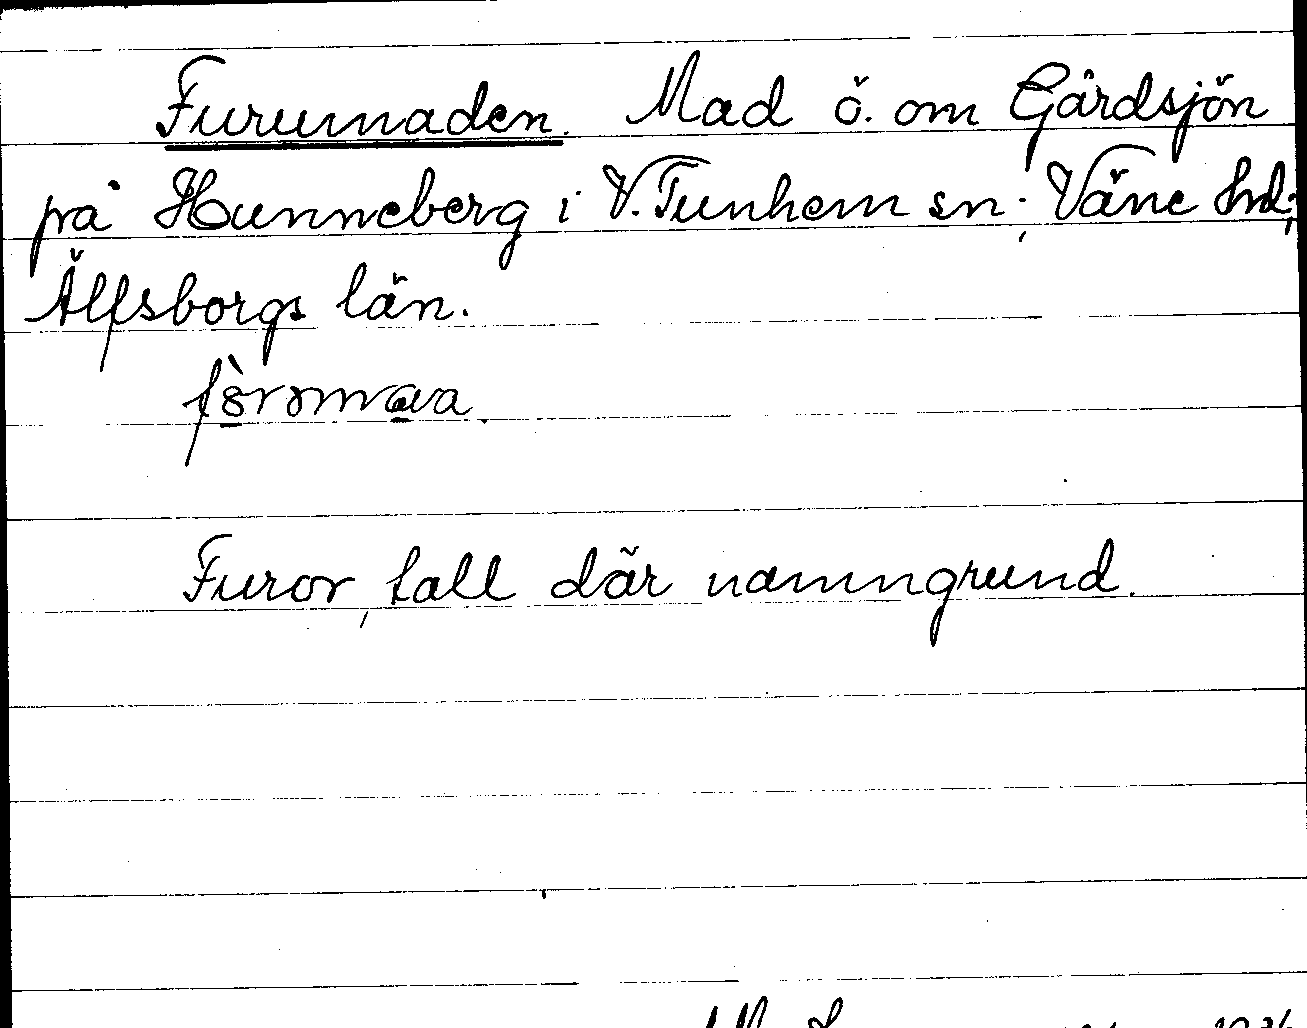 Furumaden. Mad ö. om Gårdsjön
på Hunneberg i V. Tunhem sn; Väne hd;
Älfsborgs län.
Furor, tall där namngrund.